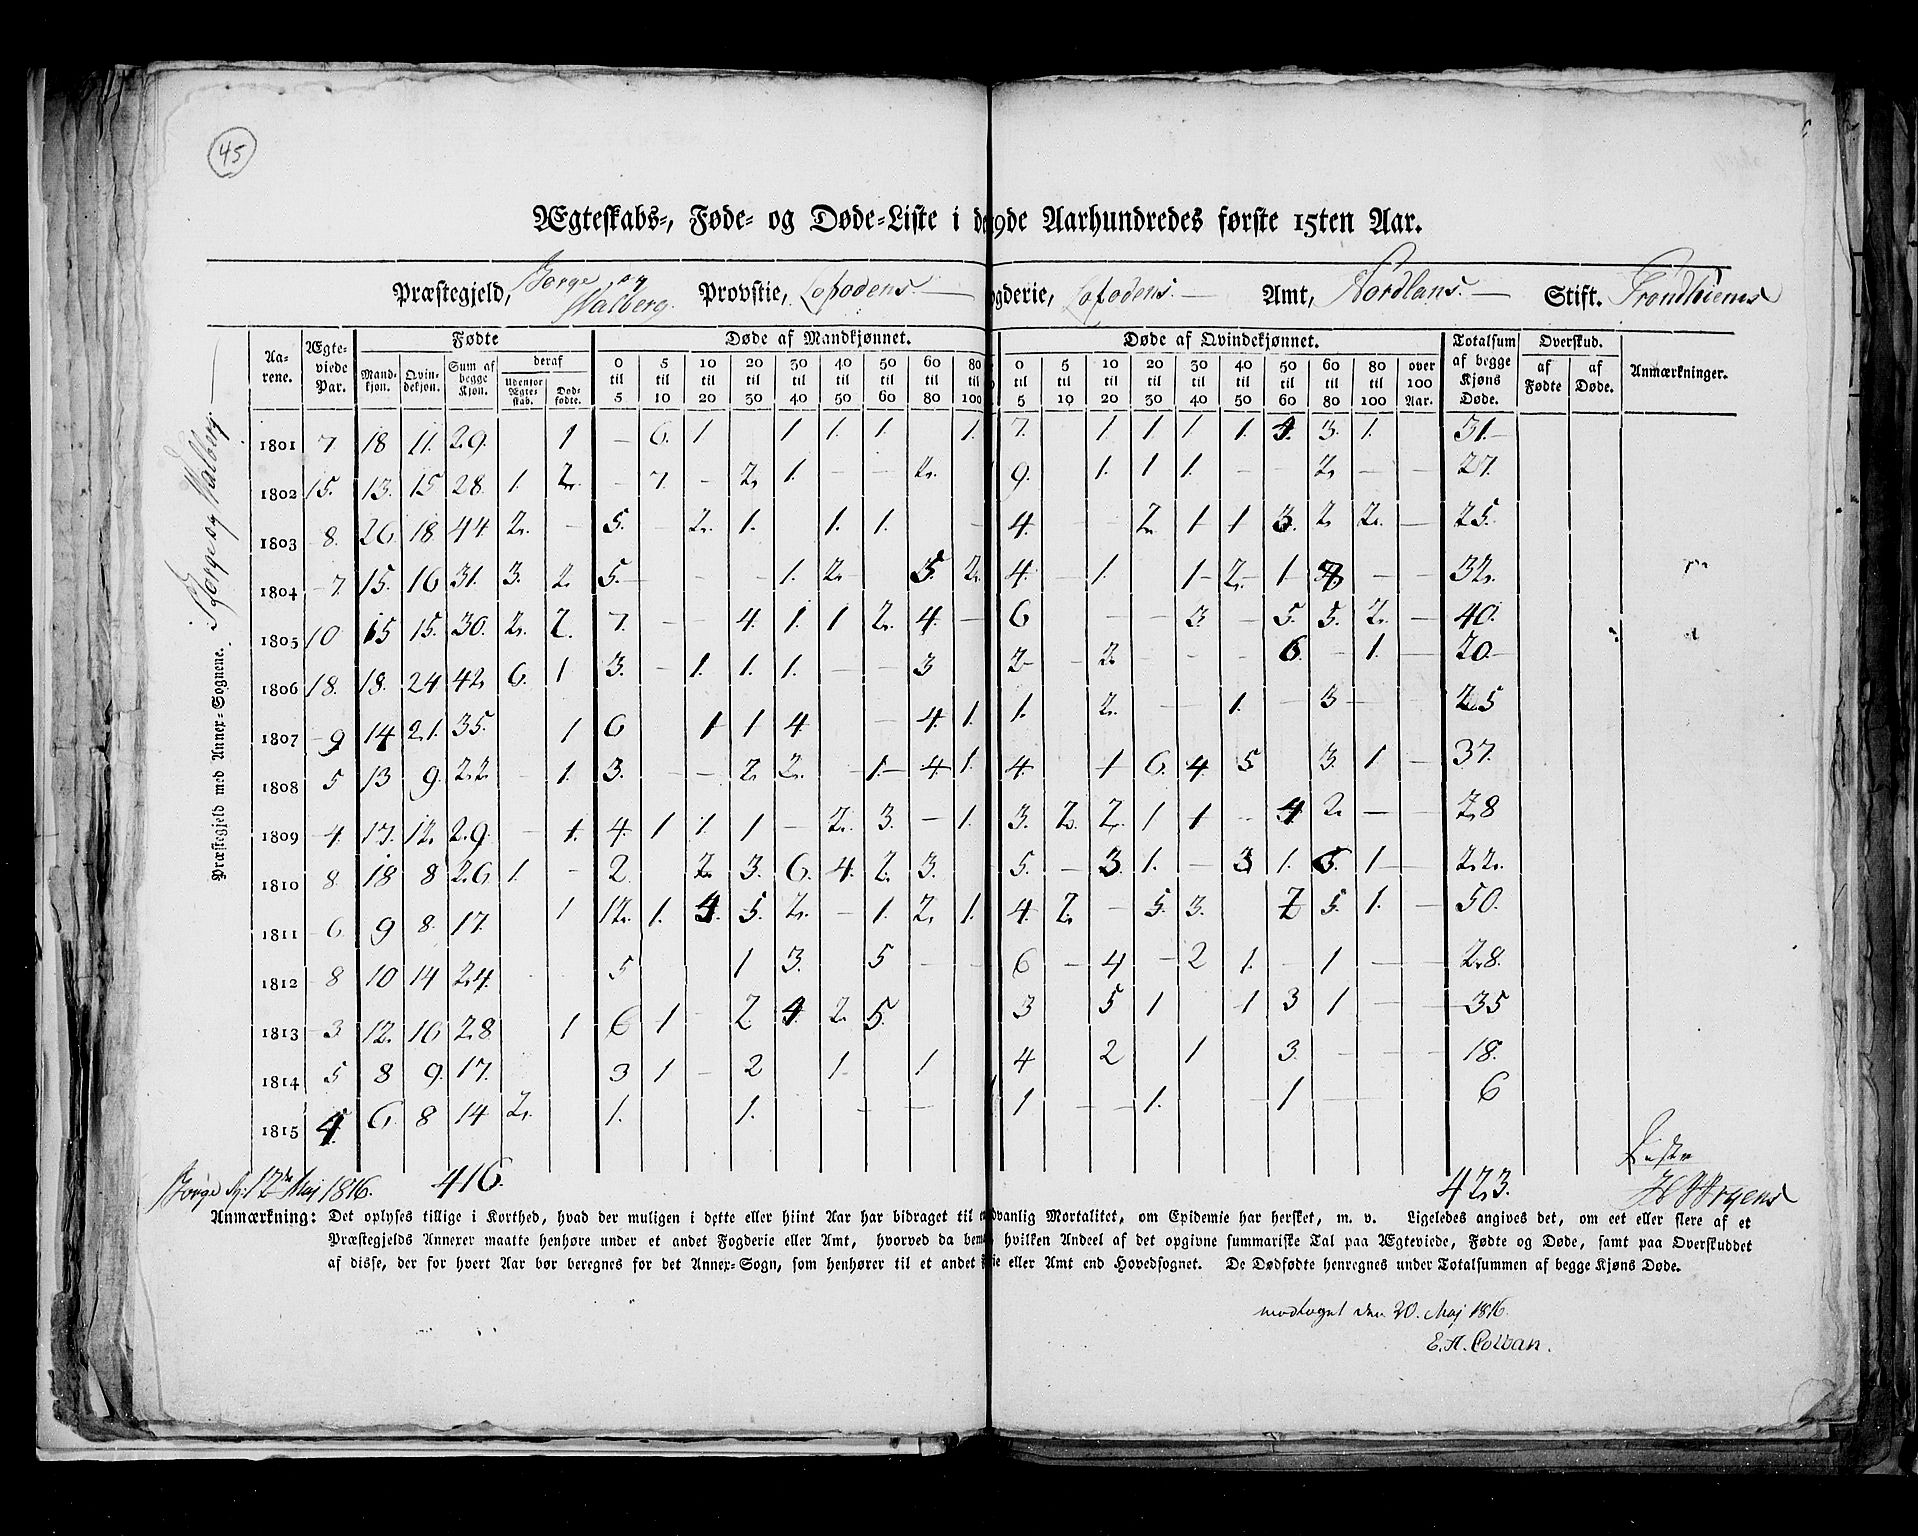 45
Ægteskabs-, Føde- og Døde-Liste i de 19de Aarhundredes første 15ten Aar.
Præstegjeld, Borge og Valberg. Provstie, Lofodens. ogderie, Lofodens. Amt, Nordlans. Stift. Trondhiems
Aarene. Ægteviede Par. Fødte Døde af Mandkjønnet. Døde af Qvindekjønnet. Totalsum af begge Kjøns Døde. Overskud. Anmærkninger.
Mandkjøn. Qvindekjøn. Sum af begge Kjøn. deraf Udenfor Ægteskab. Dødfødte. 0 til 5 5 til 10 10 til 20 20 til 30 30 til 40 40 til 50 50 til 60 60 til 80 80 til 100 0 til 5 5 til 10 10 til 20 20 til 30 30 til 40 40 til 50 50 til 60 60 til 80 80 til 100 over 100 Aar. af Fødte af Døde.
Præstegjeld med Annex-Sognene. Borge og Valberg
1801 7 18 11. 29. 1 – 6. 1 1 1. 1 1. 7. 1 1 1 1. 4. 3. 1. 31.
1802 15. 13. 15 28. 1. 2. – 7. – 2. 1. – – 2. 9. 1. 1 1. – – 2. – – 27.
1803 8. 26. 18. 44 2. – 5. – 2. 1. 1. 1. – 4. 2. 1 1 3. 2. 2. – 25.
1804 7. 15. 16 31. 3. 2. 5. – – – 1. 2. 5. 2. 4. – 1. 1 2. 1 4. – – 32.
1805 10 15 15. 30. 2. 2. 7. – – 4. 1. 1 2. 4. – 6 – – 3. – 5. 5. 2. – 40.
1806 18. 18. 24 42. 6. 1 3. – 1. 1. 1. – – 3 2 – 2. – – – 6. – 1. – 20.
1807 9 14 21. 35. 1 6 1 1 4 – 4. 1. 1. 2. – – 1. – 3 – – 25
1808 5 13 9. 22. – 1. 3. – – 2. 2. – 1 4 1. 4. 1 6. 4 5 3. 1 – 37.
1809 4. 17. 12. 29. – 1. 4. 1 1. 1 – 2. 3. – 1. 3. 2. 2. 1 1 – 4. 2. – – 28
1810 8. 18 8 26. 1. – 2. 2. 3. 6. 4. 2. 3. 5. – 3. 1. – 3 1. 5. 1 – 22.
1811 6. 9 8. 17. 1 12. 1. 4. 5. 2. – 1. 2. 1. 4. 2. – 5. 3. 7 5. 1. – 50.
1812 8 10 14 24. 5 1 3. 5 – – 6 – 4 – 2 1. – 1 – – 28.
1813 3 12. 16 28 1 6 1 – 2 4. 2. 5. 3 5 1 1 3 1 – – 35
1814 5 8 9. 17. 3 1 – 2 1 1 4 2 1 3. – – – 18.
1815 4. 6. 8 14 2. 1. 1. – – 1 – – 1. 1 – – 6
Borge 12te Maj 1816. 416. 423.
Anmærkning: Det oplyses tillige i Korthed, hvad der muligen i dette eller hiint Aar har bidraget til dvanlig Mortalitet, om Epidemie har hersket, m. v. Ligeledes angives det, om eet eller flere af et
Præstegjelds Annexer maatte henhøre under et andet Fogderie eller Amt, hvorved da bem hvilken Andeel af det opgivne summariske Tal paa Ægteviede, Fødte og Døde, samt paa Overskuddet
af disse, der for hvert Aar bør beregnes for det Annex-Sogn, som henhører til et andet ie eller Amt end Hovedsognet. De Dødfødte henregnes under Totalsummen af begge Kjøns Døde.
modtaget den 20. Maj 1816.
E. A. Colban.